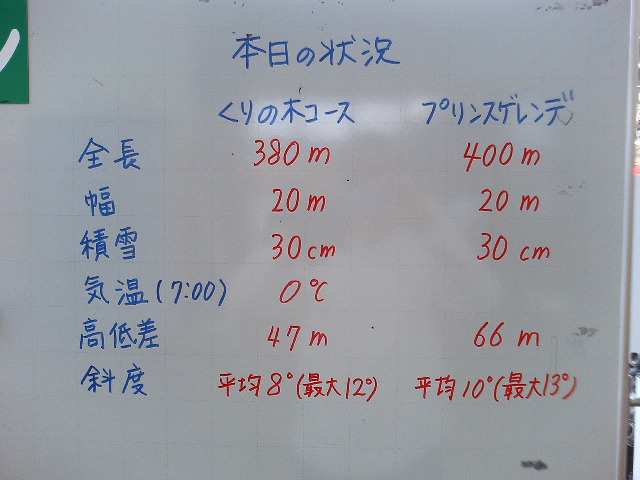 本日の状況
くりの木コース プリンスゲレンデ
全長 380m 400m
幅 20m 20m
積雪 30cm 30cm
気温(7:00) 0℃
高低差 47m 66m
斜度 平均8°(最大12°) 平均10°(最大13°)